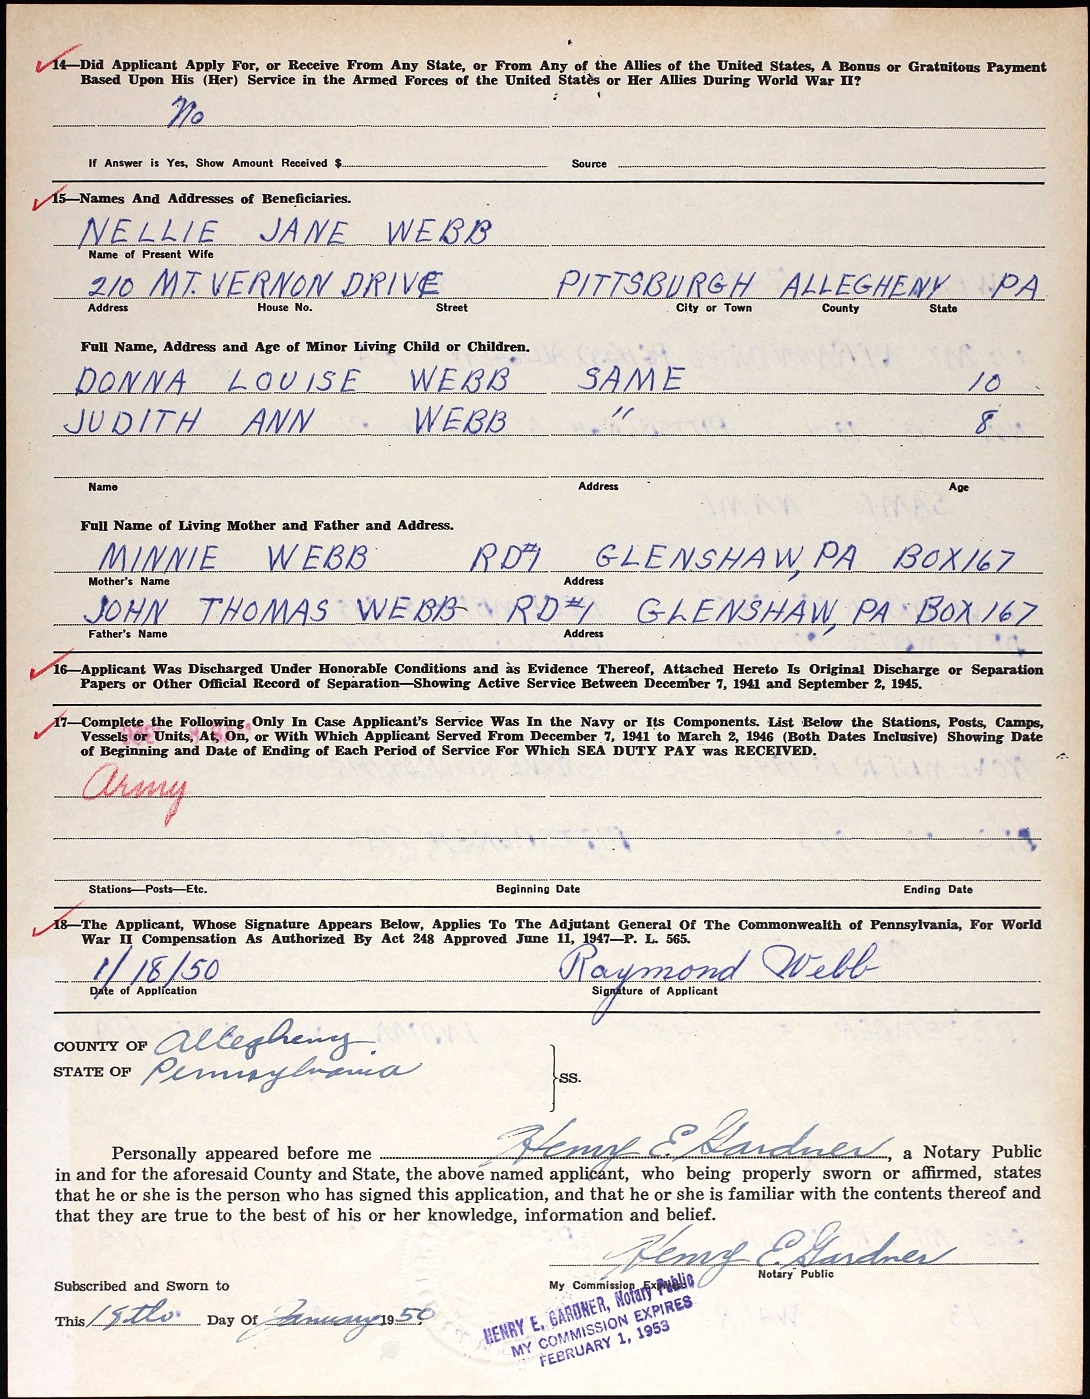 14—Did Applicant Apply For, or Receive From Any State, or From Any of the Allies of the United States, A Bonus or Gratuitous Payment
Based Upon His (Her) Service in the Armed Forces of the United States or Her Allies During World War II?
No
If Answer is Yes, Show Amount Received $ Source
15—Names And Addresses of Beneficiaries.
NELLIE JANE WEBB
Name of Present Wife
210 MT. VERNON DRIVE PITTSBURGH ALLEGHENY PA
Address House No. Street City or Town County State
Full Name, Address and Age of Minor Living Child or Children.
DONNA LOUISE WEBB SAME 10
JUDITH ANN WEBB " 8
Name Address Age
Full Name of Living Mother and Father and Address.
MINNIE WEBB RD#1 GLENSHAW, PA BOX 167
Mother's Name Address
JOHN THOMAS WEBB RD#1 GLENSHAW, PA BOX 167
Father's Name Address
16—Applicant Was Discharged Under Honorable Conditions and as Evidence Thereof, Attached Hereto Is Original Discharge or Separation
Papers or Other Official Record of Separation—Showing Active Service Between December 7, 1941 and September 2, 1945.
17—Complete the Following Only In Case Applicant's Service Was In the Navy or Its Components. List Below the Stations, Posts, Camps,
Vessels or Units, At, On, or With Which Applicant Served From December 7, 1941 to March 2, 1946 (Both Dates Inclusive) Showing Date
of Beginning and Date of Ending of Each Period of Service For Which SEA DUTY PAY was RECEIVED.
Army
Stations—Posts—Etc. Beginning Date Ending Date
18—The Applicant, Whose Signature Appears Below, Applies To The Adjutant General Of The Commonwealth of Pennsylvania, For World
War II Compensation As Authorized By Act 248 Approved June 11, 1947—P. L. 565.
1/18/50 Raymond Webb
Date of Application Signature of Applicant
COUNTY OF Allegheny
STATE OF Pennsylvania SS.
Personally appeared before me Henry E. Gardner, a Notary Public
in and for the aforesaid County and State, the above named applicant, who being properly sworn or affirmed, states
that he or she is the person who has signed this application, and that he or she is familiar with the contents thereof and
that they are true to the best of his or her knowledge, information and belief.
Henry E. Gardner
Notary Public
Subscribed and Sworn to My Commission Expires
This 18th Day Of January 1950
HENRY E. GARDNER, Notary Public
MY COMMISSION EXPIRES
FEBRUARY 1, 1953